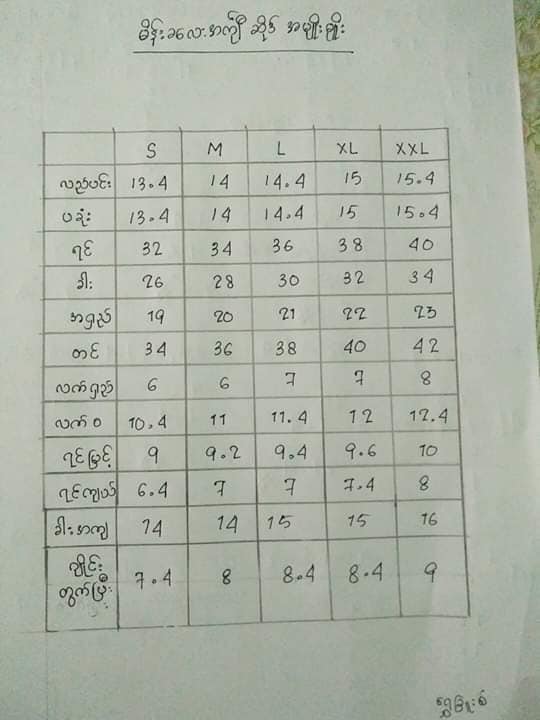 မိန်းခလေးအင်္ကျီ ဆိုဒ် အမျိုးမျိုး
S M L XL XXL
လည်ပင်း 13.4 14 14.4 15 15.4
ပခုံး 13.4 14 14.4 15 15.4
ရင် 32 34 36 38 40
ခါး 26 28 30 32 34
အရှည် 19 20 21 22 23
တင် 34 36 38 40 42
လက်ရှည် 6 6 7 7 8
လက်ဝ 10.4 11 11.4 12 12.4
ရင်မြင့် 9 9.2 9.4 9.6 10
ရင်ကျယ် 6.4 7 7 7.4 8
ခါးအကျ 14 14 15 15 16
ချိုင်း
တွက်ပြီး 7.4 8 8.4 8.4 9